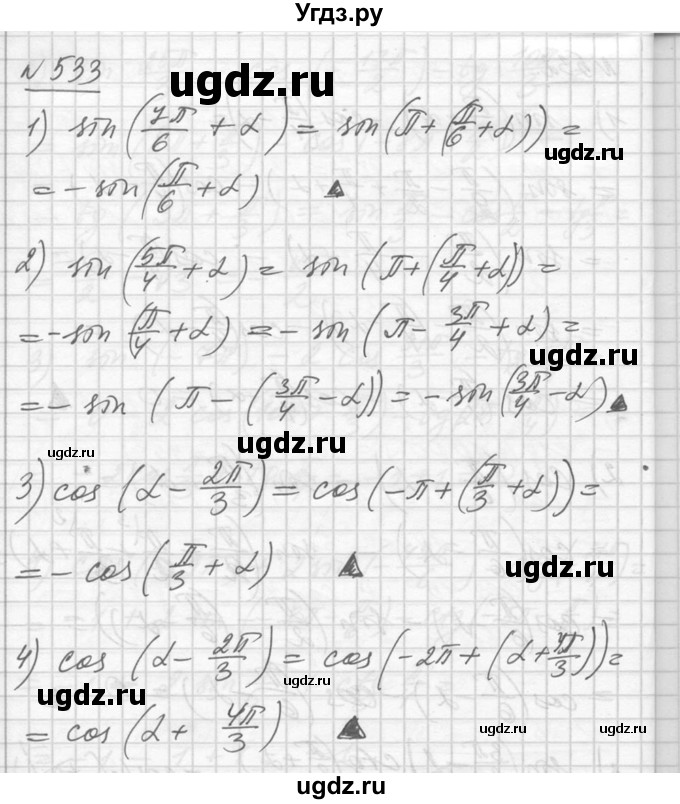 Угдз.ру
№ 533
ugdz.ru
1) sin(7π/6 + α) = sin(π+(π/6+α)) =
ugdz.ru
= - sin(π/6 + α) ▲
2) sin(5π/4 + α) = sin(π+(π/4+α)) =
= -sin(π/4 + α) = - sin(π - 3π/4 + α) =
ugdz.ru
= - sin(π - (3π/4 - α)) = - sin(3π/4 - α) ▲
ugdz.ru
ugdz.ru
3) cos(α - 2π/3) = cos(-π+(π/3+α)) =
= - cos(π/3 + α) ▲
ugdz.ru
4) cos(α - 2π/3) = cos(-2π+(α+4π/3)) =
ugdz.ru
ugdz.ru
= cos(α + 4π/3) ▲
ugdz.ru
ugdz.ru
ugdz.ru